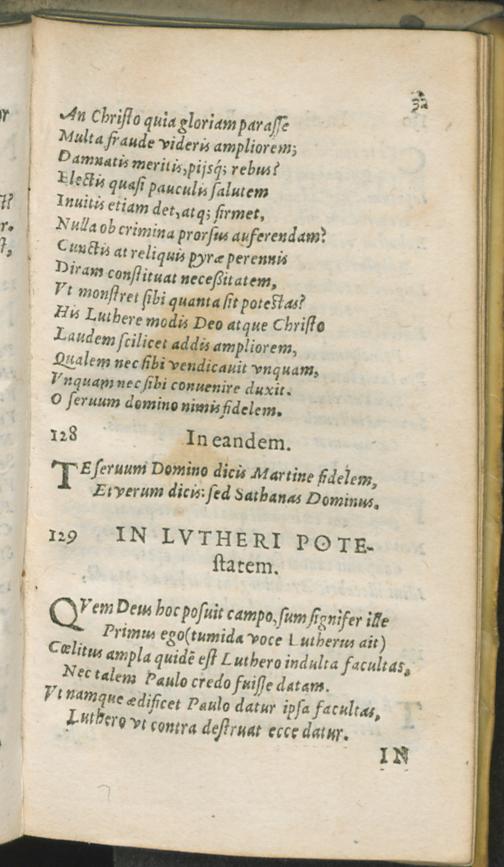 32
An Christo quia gloriam parasse
Multa fraude videris ampliorem;
Damnatis meritis, pijsq́; rebus?
Electis quasi pauculis salutem
Inuitis etiam det, atq; firmet,
Nulla ob crimina prorsus auferendam?
Cunctis at reliquis pyræ perennis
Diram constituat necessitatem,
Vt monstret sibi quanta sit potestas?
His Luthere modis Deo atque Christo
Laudem scilicet addis ampliorem,
Qualem nec sibi vendicauit vnquam,
Vnquam nec sibi conuenire duxit.
O seruum domino nimis fidelem.
128 In eandem.
TE seruum Domino dicis Martine fidelem,
Et verum dicis: sed Sathanas Dominus.
129 IN LVTHERI POTE-
statem.
QVem Deus hoc posuit campo, sum signifer ille
Primus ego (tumida voce Lutherus ait)
Cœlitus ampla quidē est Luthero indulta facultas,
Nec talem Paulo credo fuisse datam.
Vt namque ædificet Paulo datur ipsa facultas,
Luthero vt contra destruat ecce datur.
IN